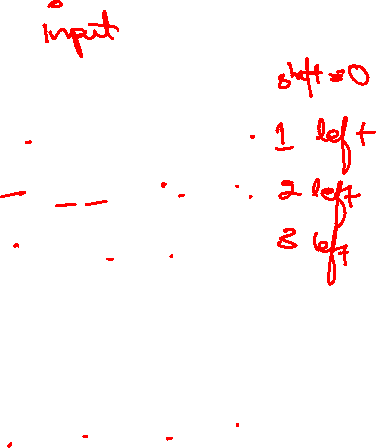 input
shift = 0
1 left
2 left
8 left